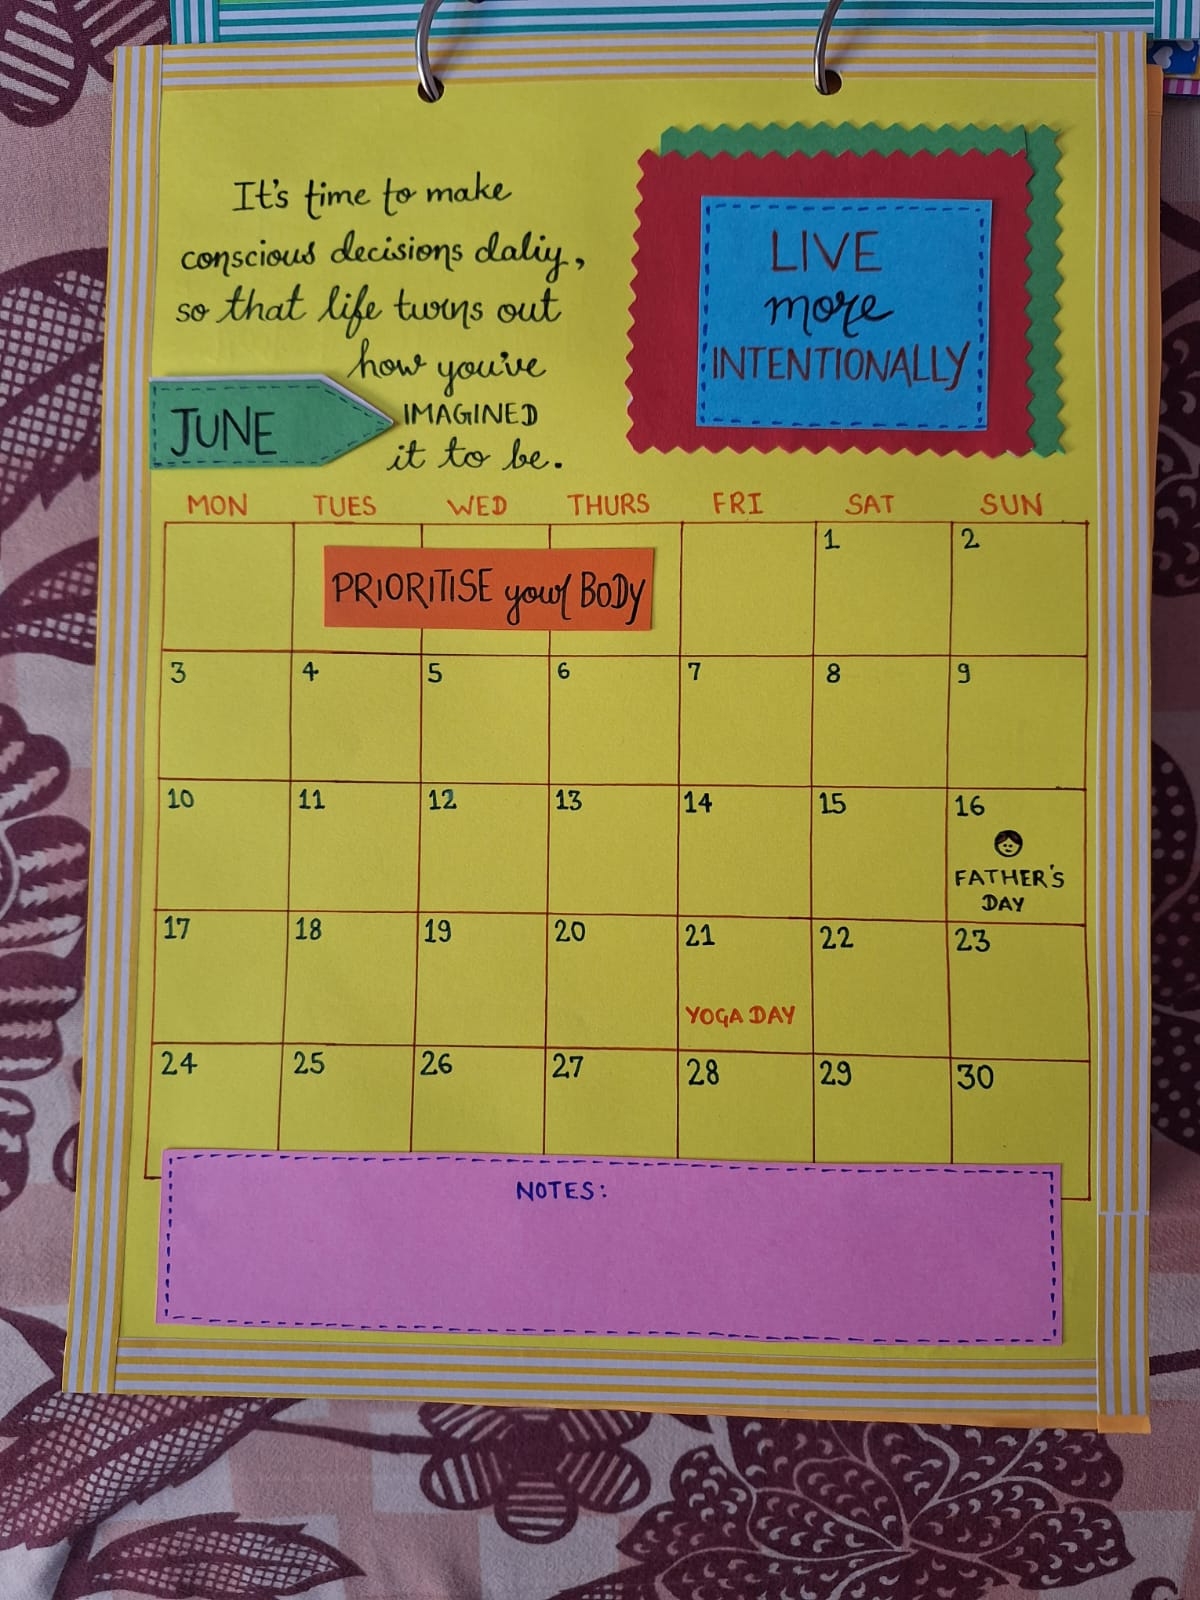 It's time to make
conscious decisions daliy,
so that life turns out
how you've
IMAGINED
it to be.
LIVE
more
INTENTIONALLY
JUNE
MON TUES WED THURS FRI SAT SUN
PRIORITISE your BODY
1 2
3 4 5 6 7 8 9
10 11 12 13 14 15 16
FATHER'S
DAY
17 18 19 20 21 22 23
YOGA DAY
24 25 26 27 28 29 30
NOTES: